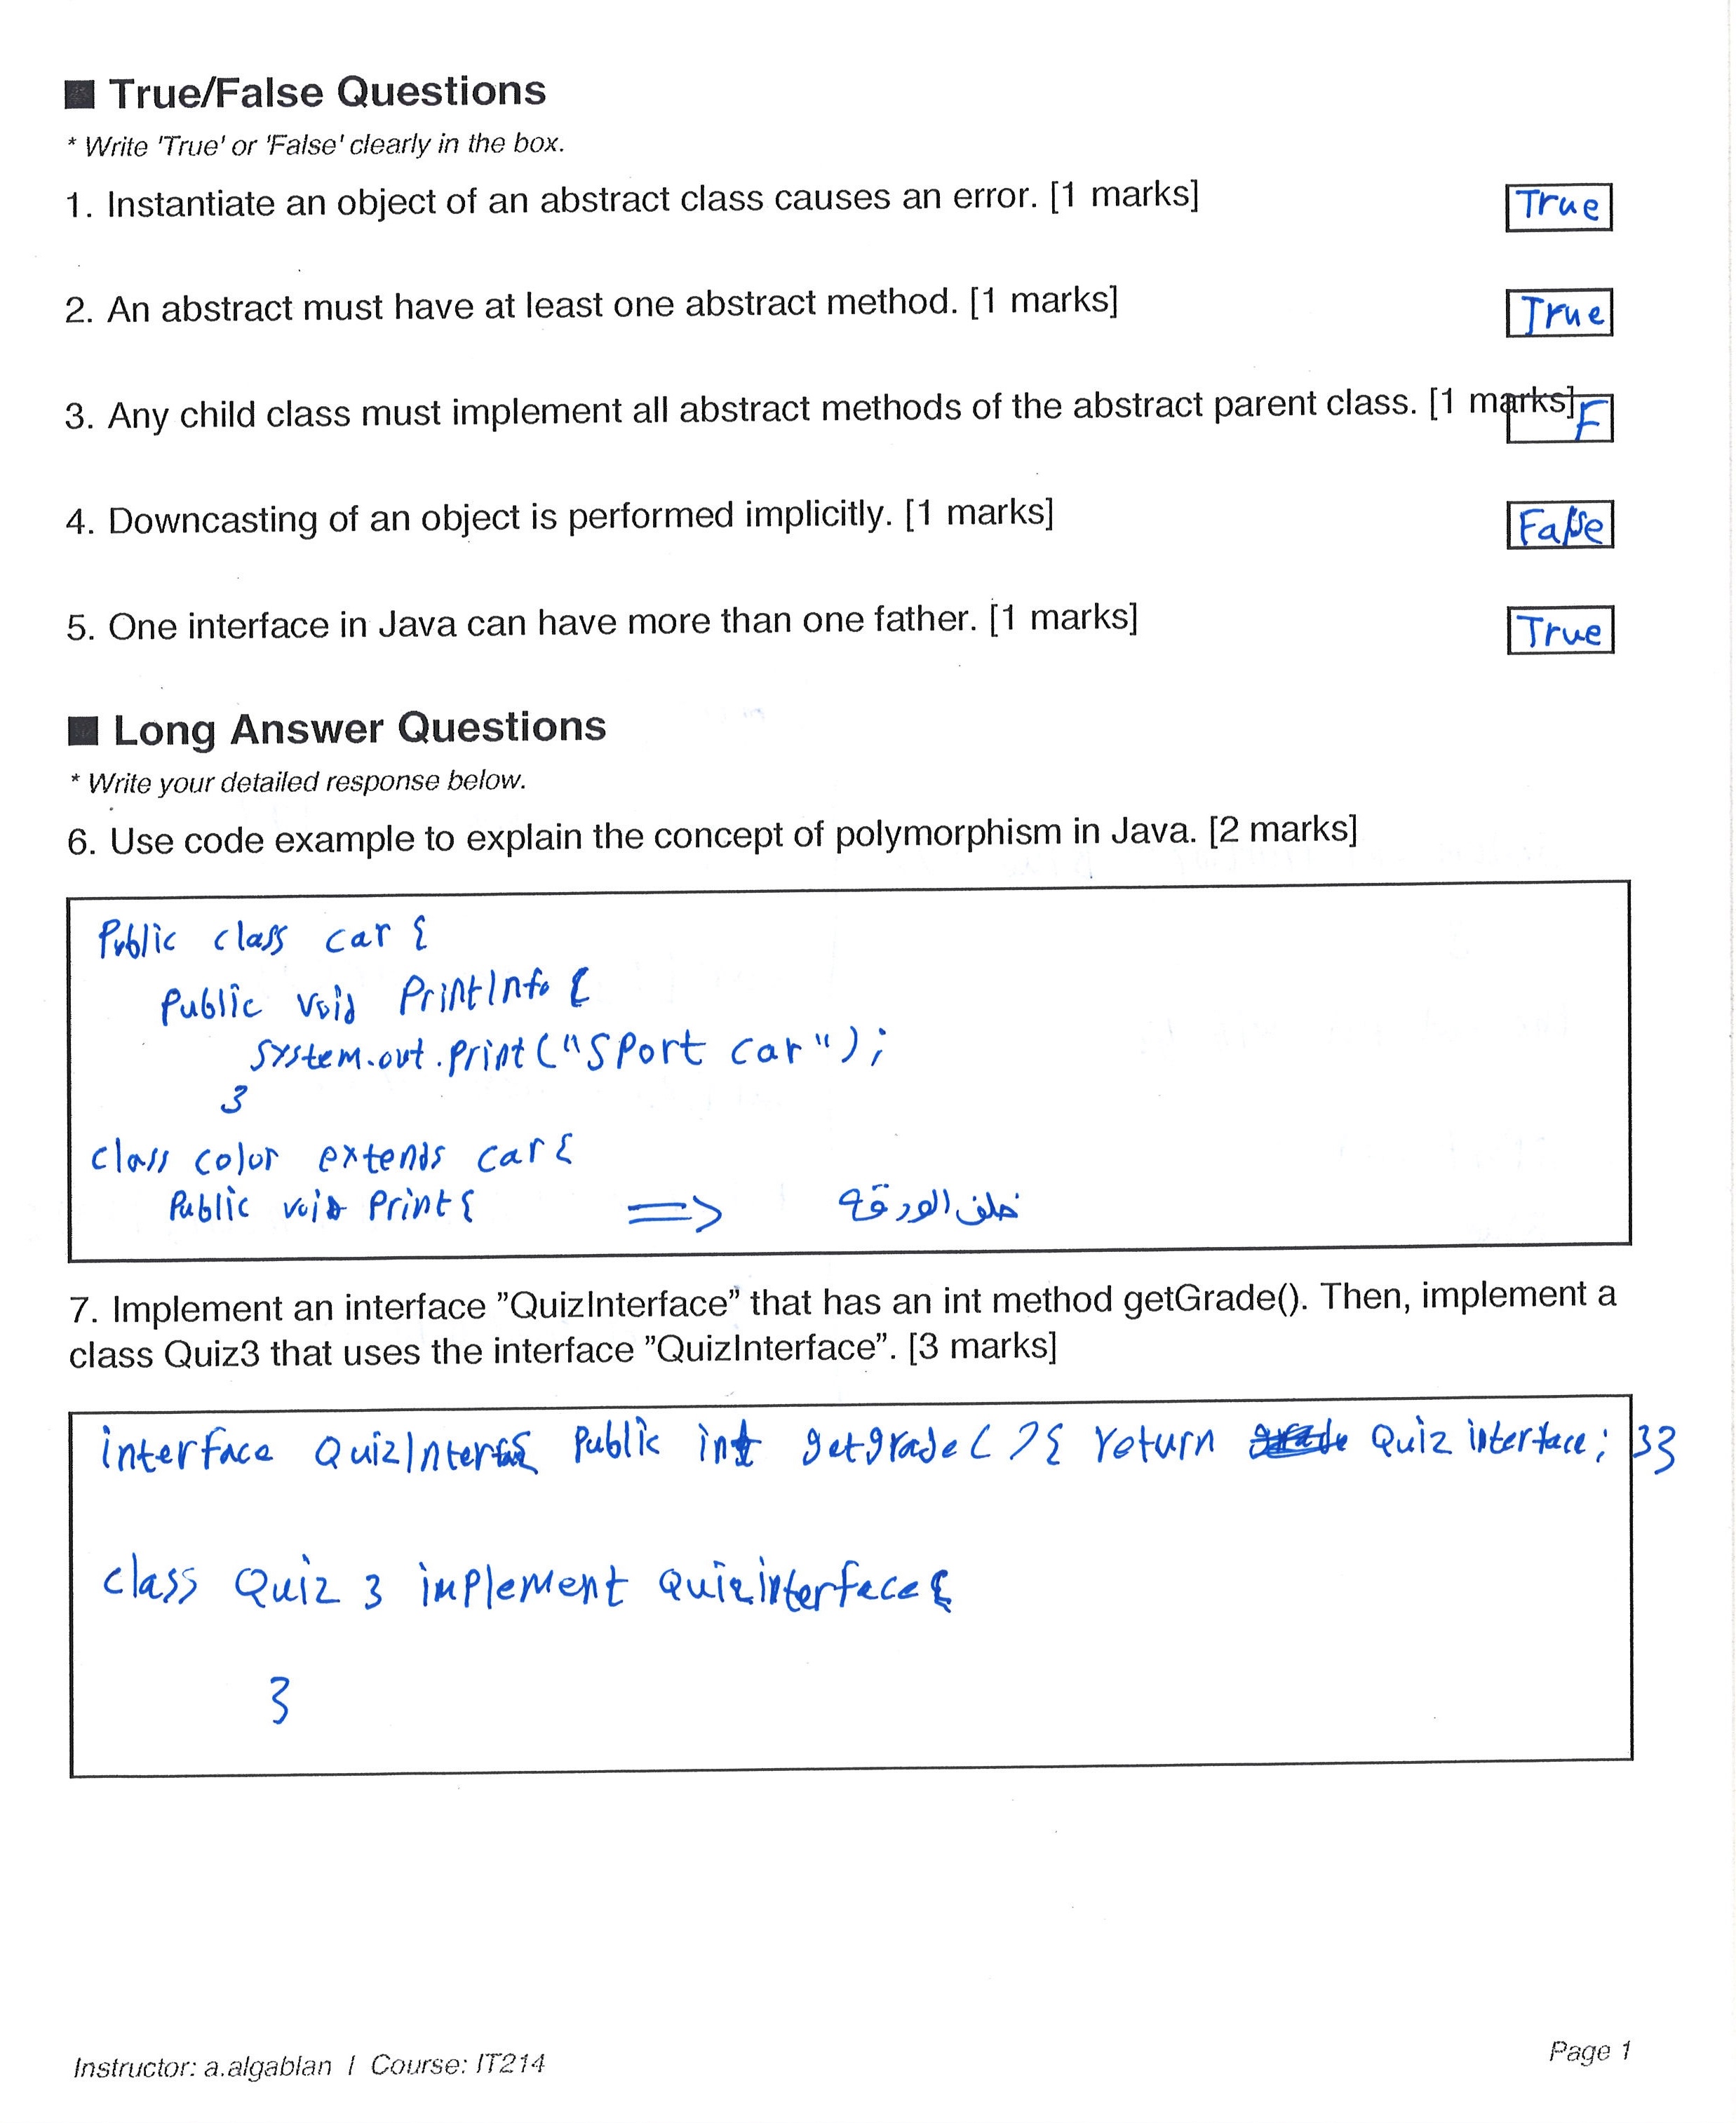 ■ True/False Questions
* Write 'True' or 'False' clearly in the box.
1. Instantiate an object of an abstract class causes an error. [1 marks]
True
2. An abstract must have at least one abstract method. [1 marks]
True
3. Any child class must implement all abstract methods of the abstract parent class. [1 marks]
F
4. Downcasting of an object is performed implicitly. [1 marks]
False
5. One interface in Java can have more than one father. [1 marks]
True
■ Long Answer Questions
* Write your detailed response below.
6. Use code example to explain the concept of polymorphism in Java. [2 marks]
Public class car {
Public void PrintInfo {
System.out.print("Sport car");
}
class color extends car {
Public void Print {  =>  خلف الورقة
7. Implement an interface ”QuizInterface” that has an int method getGrade(). Then, implement a
class Quiz3 that uses the interface ”QuizInterface”. [3 marks]
interface Public int getgrade ( ) { return Quiz interface; }}
class Quiz 3 implement Quizinterface {
}
Instructor: a.algablan | Course: IT214
Page 1